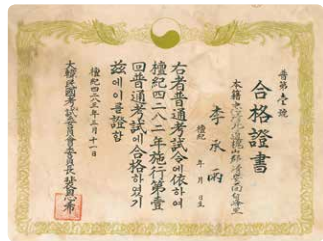 普第壹號
合格證書
本籍忠淸北道槐山郡淸安面白峰里
李承雨
檀紀 年 月 日生
右者普通考試令에依하여
檀紀四二八二年施行第壹
回普通考試에合格하였기
玆에이를證함
檀紀四二八三年三月十一日
大韓民國考試委員會委員長裵恩希